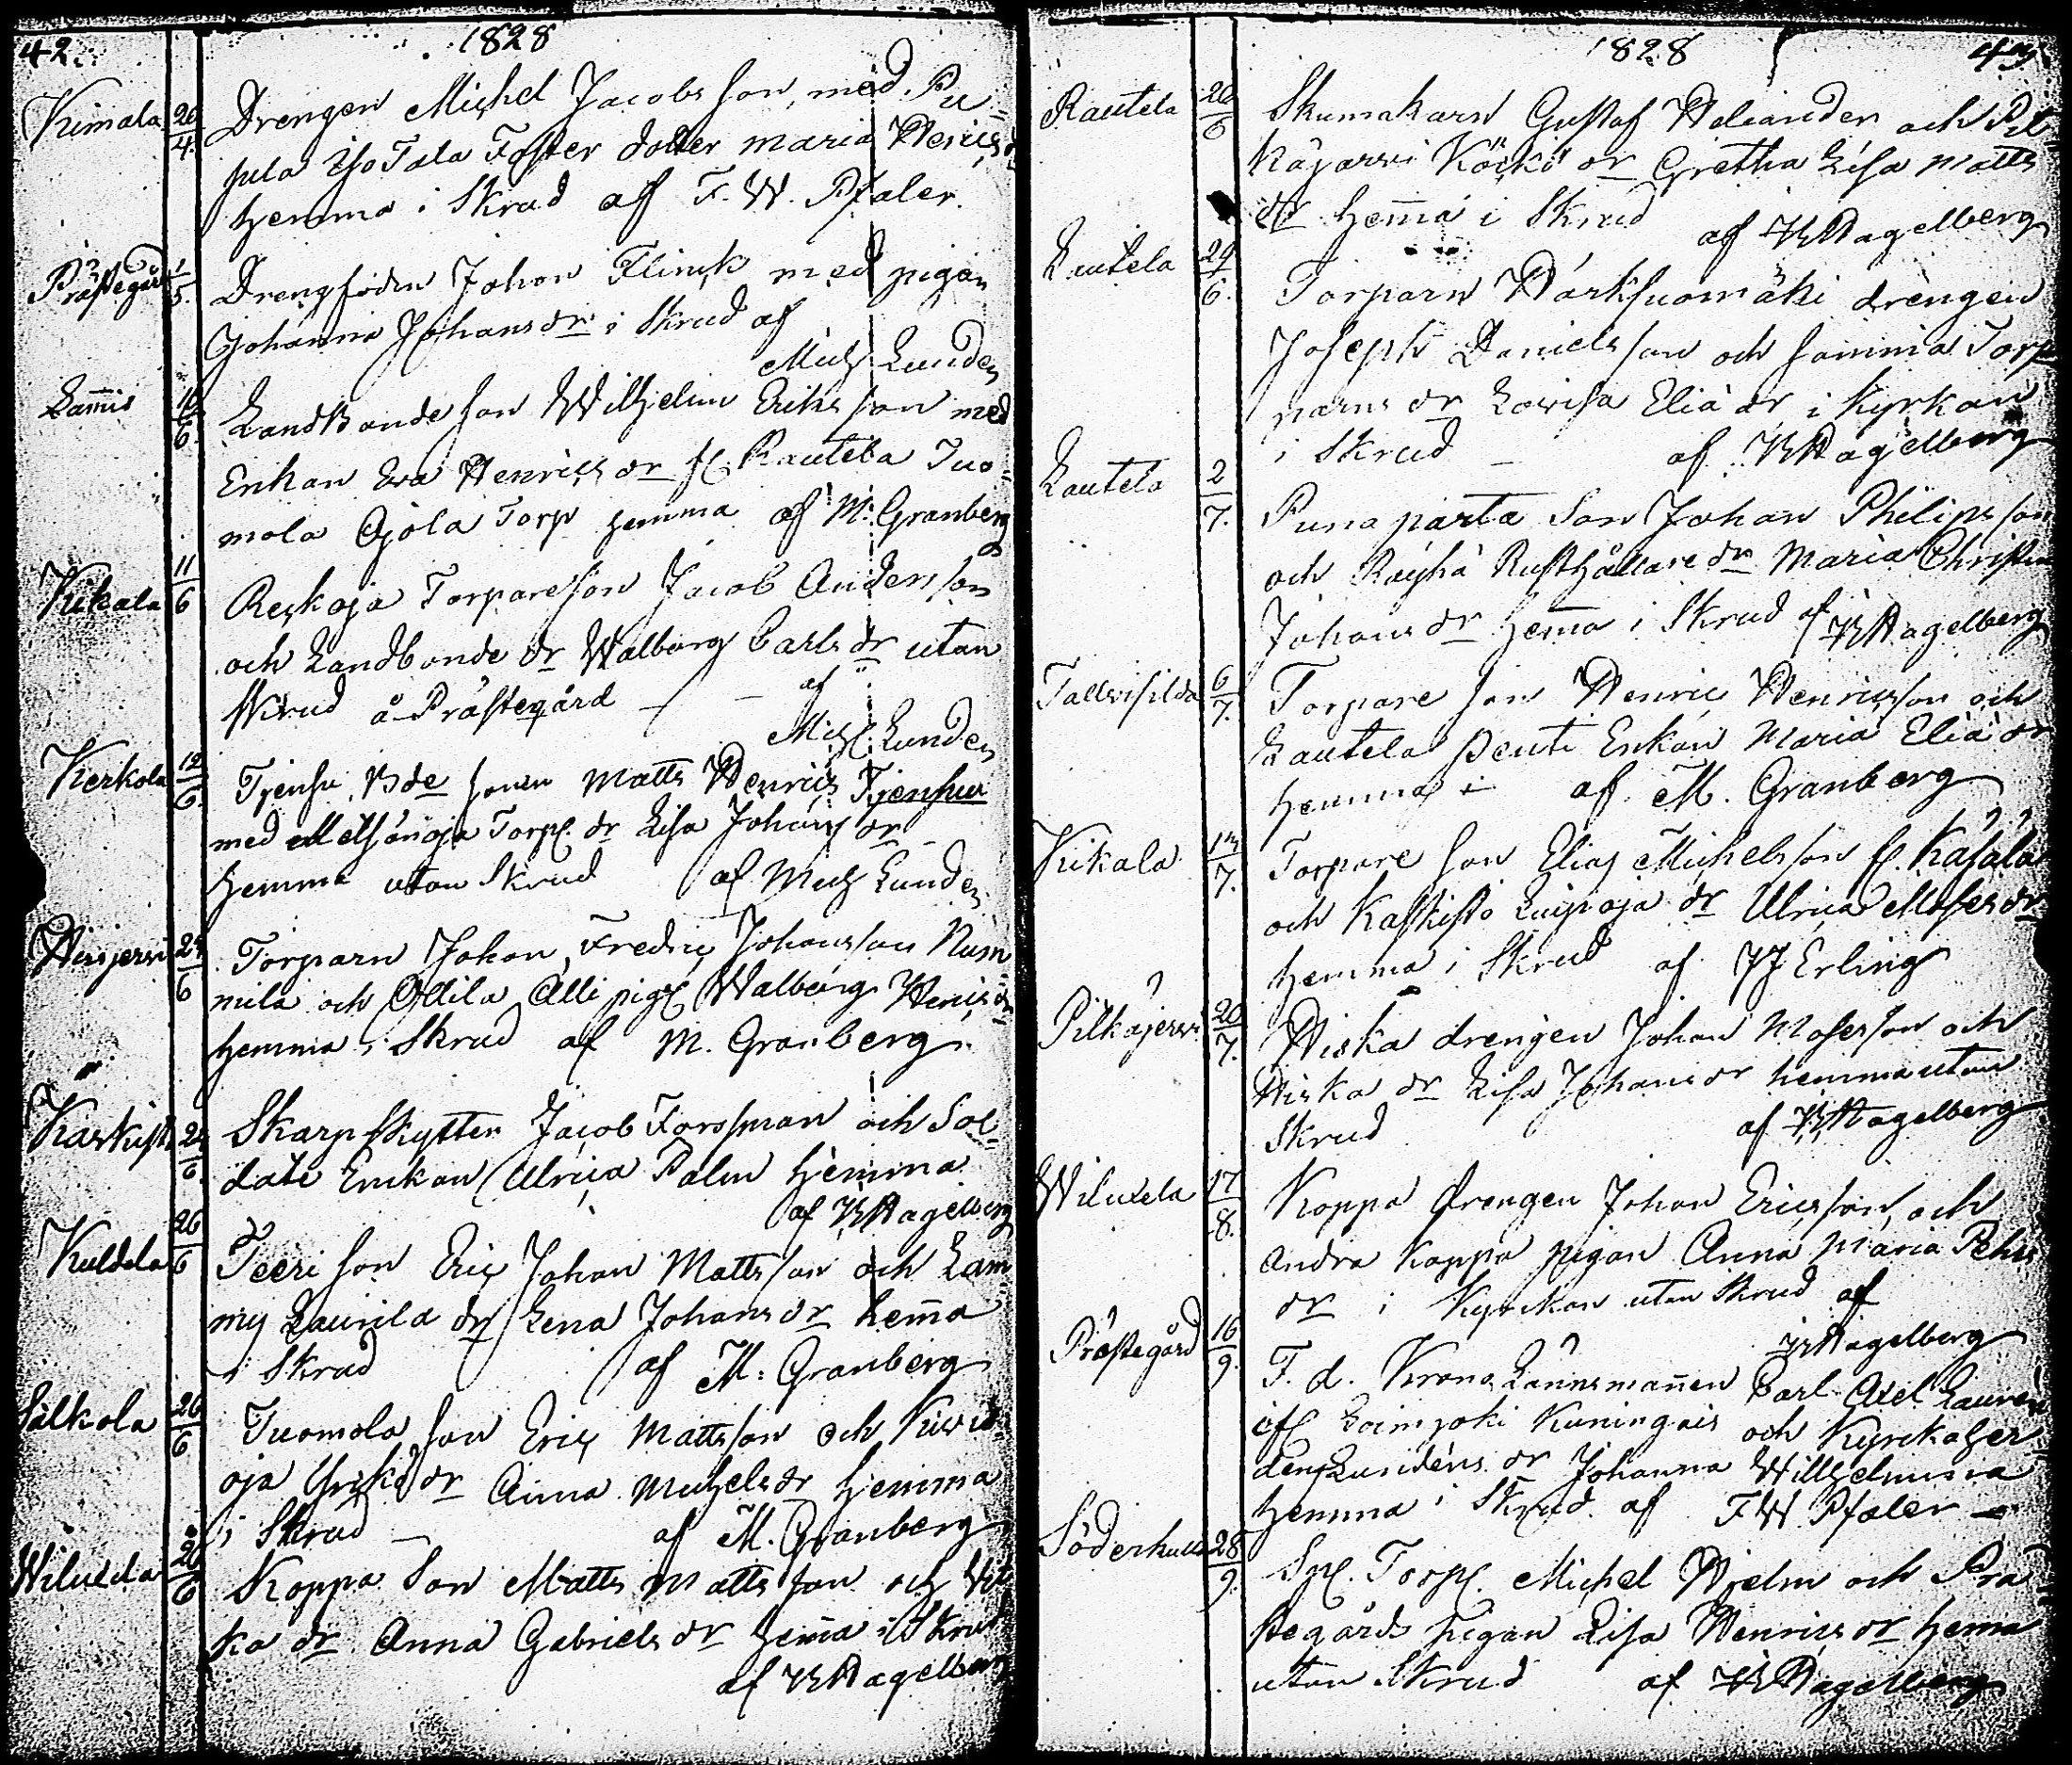 42. 1828
Kimala 20/4. Drengen Michel Jacobsson, med Pu-
sula Iso Tala Foster dotter Maria Henricsdr
hemma i Skrud af F. W. Pfaler.
Prästegård 1/5. Drengsoden Johan Flinck med pigan
Johanna Johansdr i Skrud af
Mich Lunden
Lam̄is 10/6. Landbonde son Wilhelm Eriksson med
Enkan Eva Henricsdr fr Rautela Tuo-
mola Ojola Torp hemma af M. Granberg
Kikala 11/6 Reskoja Torpareson Jacob Andersson
och Landbonde dr Walborg Carlsdr utan
Skrud å Prästegård – – af
Mich. Lunden
Kerkola 12/6. Tjensu Bde sonen Matts Henrics Tjensuu
med Metsänoja Torp. dr Lisa Johansdr
hemma utan Skrud af Mich Lunden
Hirsjerwi 24/6 Torparn Johan Fredric Johansson Num
mila och Ollila Alli pig. Walborg Henricsdr
hemma i Skrud af M. Granberg
Kaskist 24/6. Skarpskytten Jacob Forssman och Sol-
date Enkan Ulrica Palm hemma
af KHagelberg
Kuldela 26/6 Teeri son Eric Johan Mattsson och Lam
my Laurila dr Lena Johansdr hem̄a
i Skrud af M. Granberg
Salkola 26/6 Tuomola son Eric Mattsson och Kuvid-
oja Yrkö dr Anna Michelsdr hemma
i Skrud – af M. Granberg
Wiluxela 26/6 Koppa Son Matts Mattsson och His
ka dr Anna Gabrielsdr hem̄a i Skrud
af KHagelberg
1828 43
Rautela 20/6 Skumakarn Gustaf Welander och Pil-
käjärvi Köikö dr Gretha Lisa Matts
dr hem̄a i Skrud af KHagelberg
Lautela 24/6. Torparn Warksuomäki drengen
Joseph Danielsson och samma Torp
parns dr Lovisa Eliædr i Kyrkan
i Skrud – af KHagelberg
Lautela 2/7. Puna parta Son Johan Philipsson
och Röyhä Rusthållare dr Maria Christina
Johansdr hem̄a i Skrud af KHagelberg
Tallvisilda 6/7. Torpare son Henric Henricsson och
Lautela Penti Enkan Maria Eliædr
hemma i af M. Granberg
Kikala 13/7. Torpare son Elias Michelsson fr. Käsälä
och Kaskisto Luipoja dr Ulrica Mosesdr
hemma i Skrud af JJ Erling
Pilkäjerwi 20/7. Hiska drengen Johan Mosesson och
Hiska dr Lisa Johansdr hemma utan
Skrud af KHagelberg
Wiluxela 17/8. Koppa drengen Johan Ericsson och
andra Koppa pigan Anna Maria Pehrs
dr i Kyrkan utan Skrud af
KHagelberg
Prästegård 16/9. F. d. Krono Länsman̄en Carl Axel Lauren
ifr Loimjoki Kuningais och Kyrkoher
dens Lundéns dr Johanna Wilhelmina
hemma i Skrud af FW Pfaler –
Söderkulla 28/9. Spl. Torp. Michel Hjelm och Prä-
stegårds pigan Lisa Henricsdr hema
utan Skrud af KHagelberg